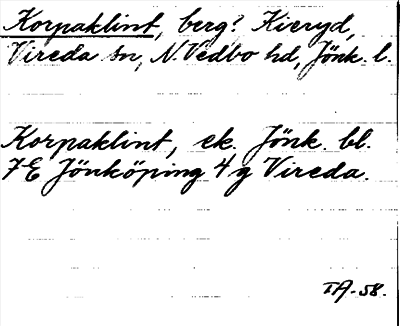 Korpaklint, berg? Kieryd,
Vireda sn, N. Vedbo hd, Jönk. l.
Korpaklint, ek. Jönk. bl.
7E Jönköping 4g Vireda.
TA-58.